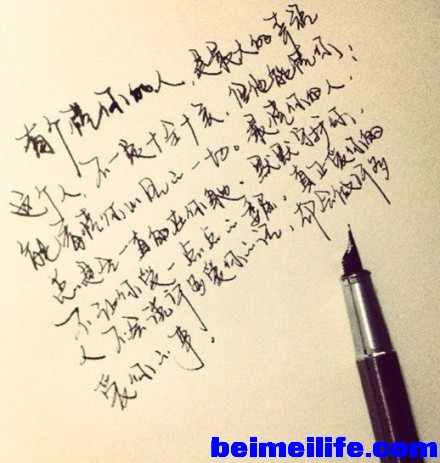 有个懂你的人，是最大的幸福
这个人，不一定十全十美，但他能读你；
能看懂你心里的一切。最懂你的人，
总是会一直的在你身边，默默守护你，
不让你受一点点的委屈。真正爱你的
人不会说许多爱你的话，却会做许多
爱你的事。
beimeilife.com